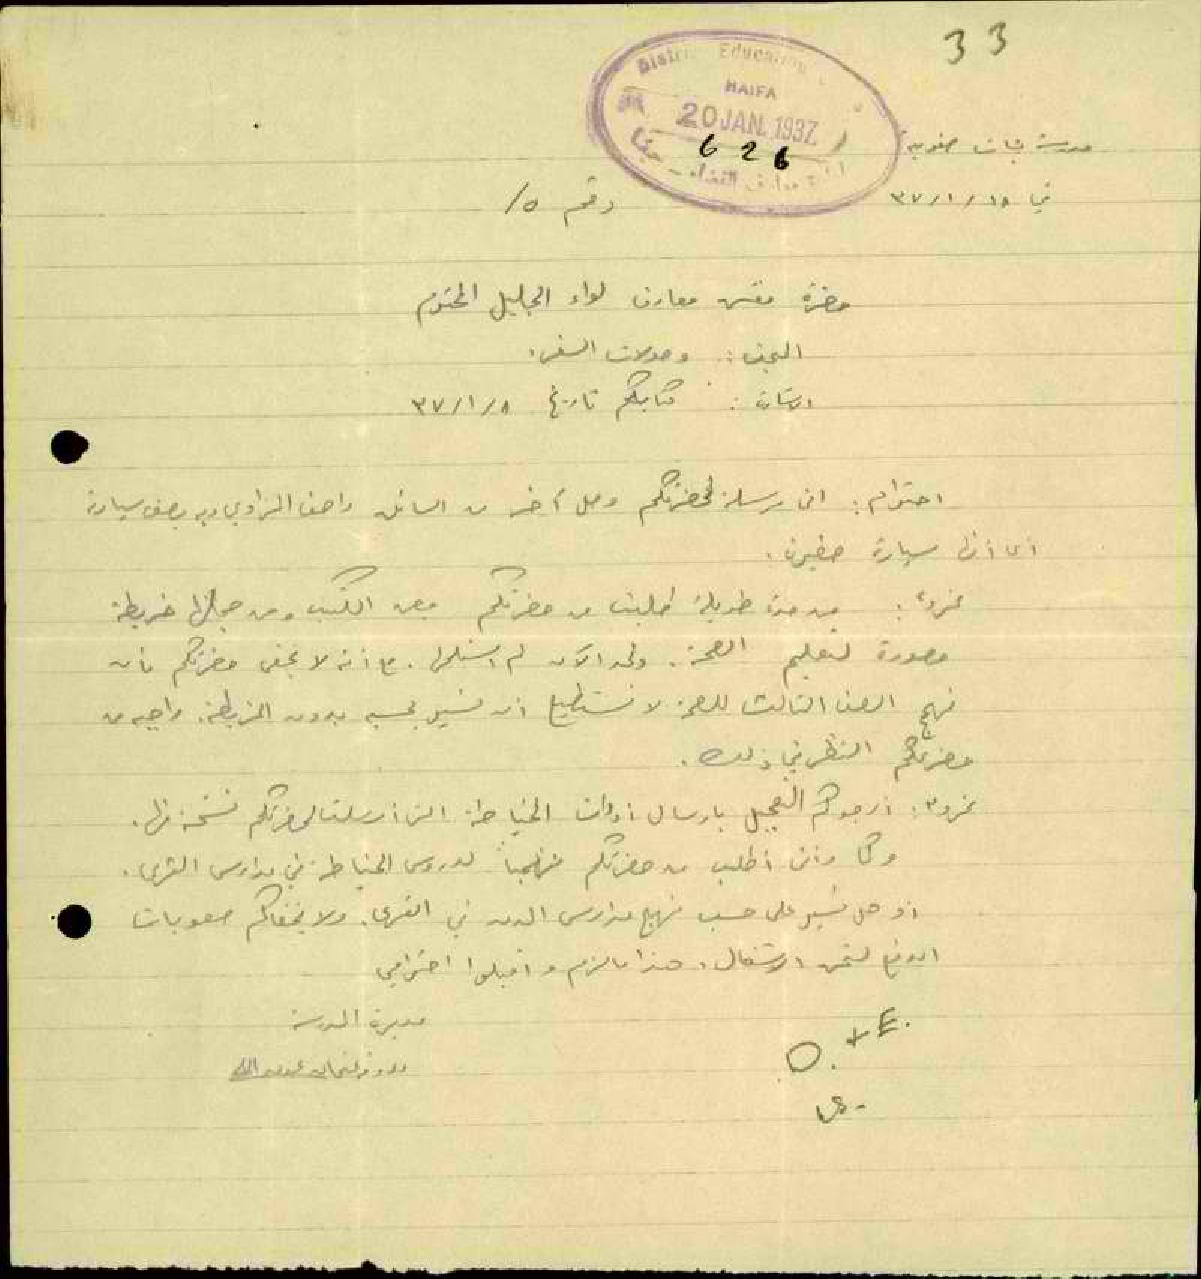 33
District Education
HAIFA
20 JAN. 1937
626
مدرسة بنات صفورية
في ١٨/١/٣٧
رقم ٥/
حضرة مفتش معارف لواء الجليل المحترم
البحث: وصولات السفر.
كتابكم تاريخ ٨/١/٣٧
احترام: اني مرسلة لحضرتكم وصل آخر من السائق واصف به يصف سيارته
سيارة صغيرة.
من مدة طويلة طلبت من حضرتكم بعض الكتب ومن جملتها خريطة
مصورة لتعليم الصحة. ولحد الآن لم استلمها. مع أنه لا يخفى حضرتكم بأن
منهج الصف الثالث للصحة لا نستطيع ان نسير بحسبه بدون الخريطة. راجية من
حضرتكم النظر في ذلك.
أرجوكم التعجيل بارسال أدوات الخياطة التي أرسلت لحضرتكم نسخة منها.
وكما وأني أطلب من حضرتكم منهجاً لدروس الخياطة في مدارس القرى.
أو هل نسير على حسب منهج مدارس المدن في القرى. ولا يخفاكم صعوبات
الدفع لثمن الاشغال. هذا ما لزم واقبلوا احترامي
مديرة المدرسة
D. + E.